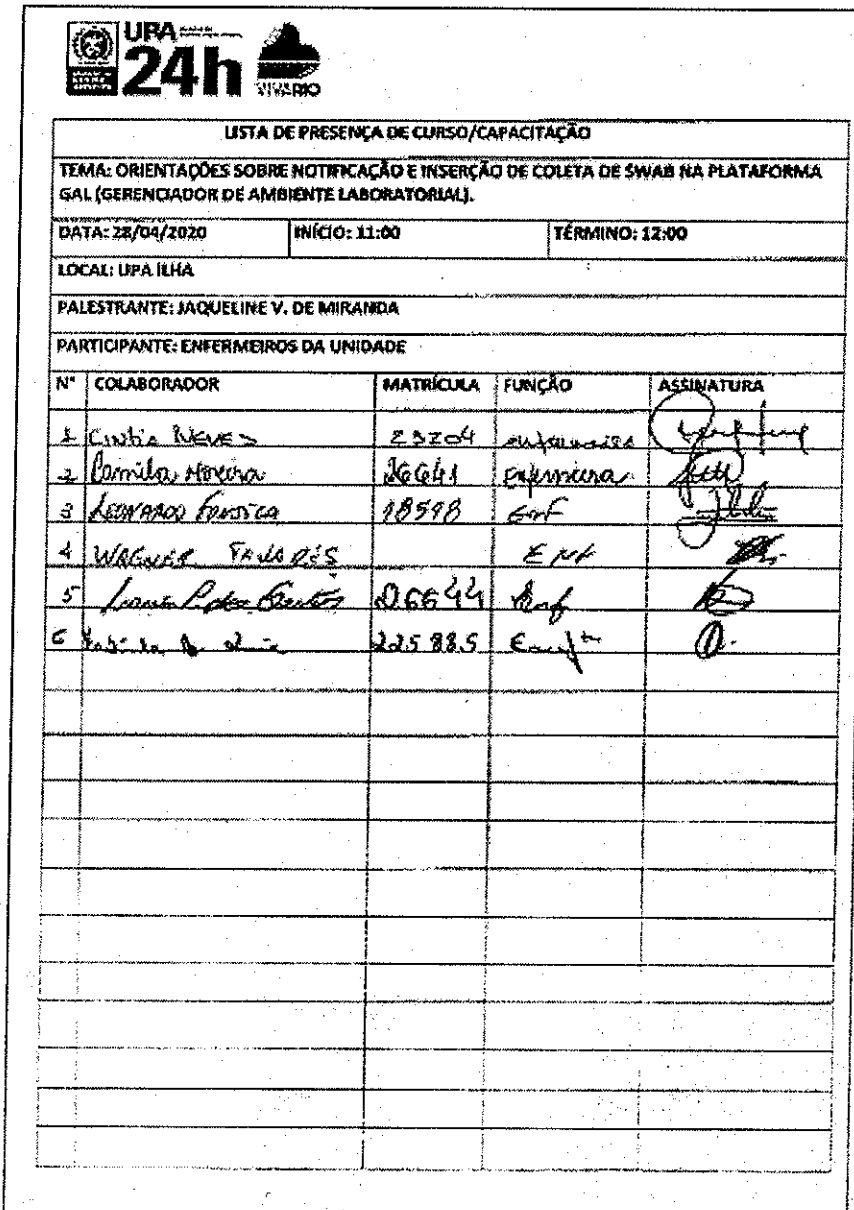 UPA
24h
VIVARIO
LISTA DE PRESENÇA DE CURSO/CAPACITAÇÃO
TEMA: ORIENTAÇÕES SOBRE NOTIFICAÇÃO E INSERÇÃO DE COLETA DE SWAB NA PLATAFORMA
GAL (GERENCIADOR DE AMBIENTE LABORATORIAL).
DATA: 28/04/2020 INÍCIO: 11:00 TÉRMINO: 12:00
LOCAL: UPA ILHA
PALESTRANTE: JAQUELINE V. DE MIRANDA
PARTICIPANTE: ENFERMEIROS DA UNIDADE
N° COLABORADOR MATRÍCULA FUNÇÃO ASSINATURA
1 Cintia Neves 23204 enfermeira
2 Camila Moreira 26641 Enfermeira
3 LEONARDO FONSECA 18598 Enf
4 WAGNER TAVARES ENF
5 26644 Enf
6 225885